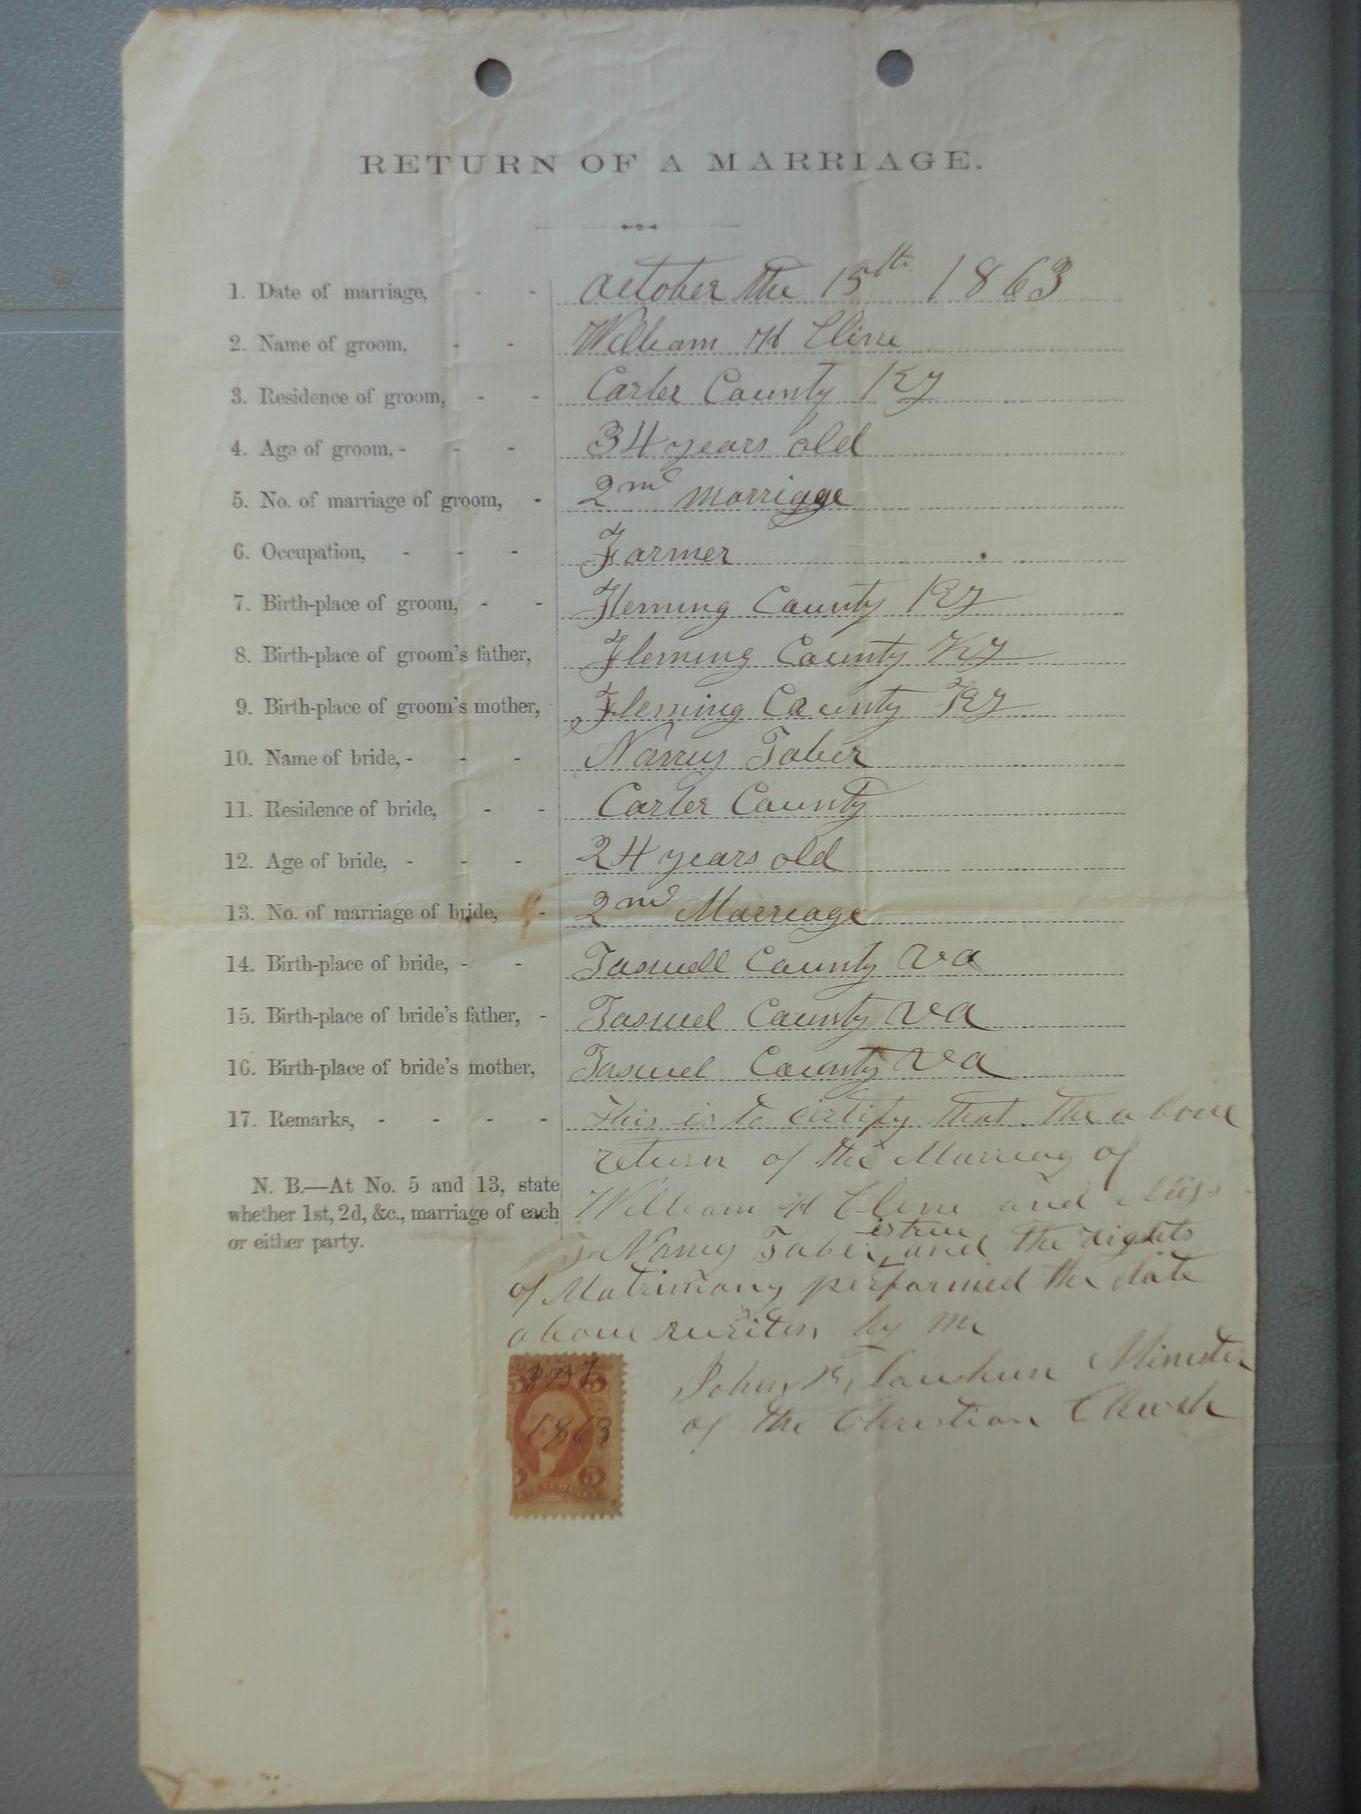 RETURN OF A MARRIAGE.
1. Date of marriage, - - October the 15th 1863
2. Name of groom, - - William H Cline
3. Residence of groom, - - Carter County Ky
4. Age of groom, - - - 34 years old
5. No. of marriage of groom, - 2nd marriage
6. Occupation, - - - Farmer
7. Birth-place of groom, - - Fleming County Ky
8. Birth-place of groom's father, Fleming County Ky
9. Birth-place of groom's mother, Fleming County Ky
10. Name of bride, - - - Nancy Taber
11. Residence of bride, - - Carter County
12. Age of bride, - - - 24 years old
13. No. of marriage of bride, - 2nd Marreage
14. Birth-place of bride, - - Taswell County Va
15. Birth-place of bride's father, - Taswel County Va
16. Birth-place of bride's mother, Taswel County Va
17. Remarks, - - - - This is to certify that the above
return of the Marreag of
N. B.—At No. 5 and 13, state
whether 1st, 2d, &c., marriage of each
or either party.
William H Cline and Miss
Nancy Taber is true and the rights
of Matrimony performed the date
above writen by me
John Minister
of the Christian Church
1863
5 5